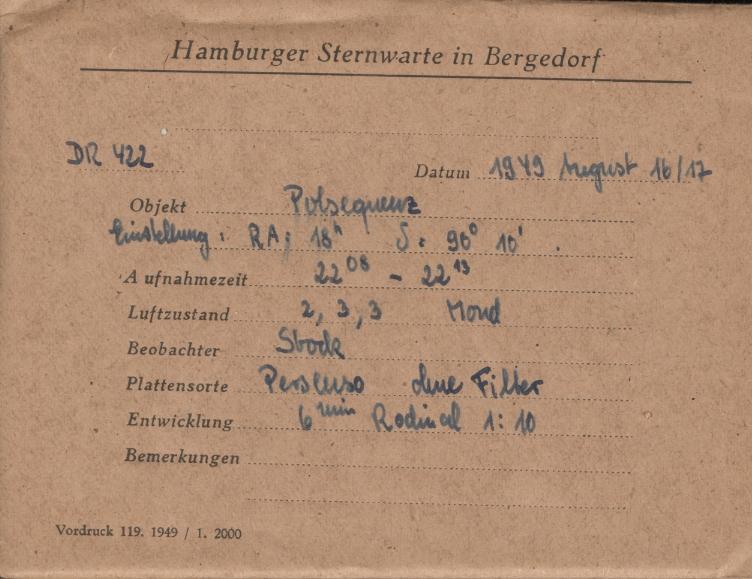 Hamburger Sternwarte in Bergedorf
DR 422
Datum 1949 August 16/17
Objekt Polsequenz
Einstellung: RA: 18ʰ δ: 90° 10'.
Aufnahmezeit 22⁰⁸ – 22¹³
Luftzustand 2, 3, 3 Mond
Beobachter Stock
Plattensorte Perseuso ohne Filter
Entwicklung 6ᵐⁱⁿ Rodinal 1:10
Bemerkungen
Vordruck 119. 1949 / 1. 2000